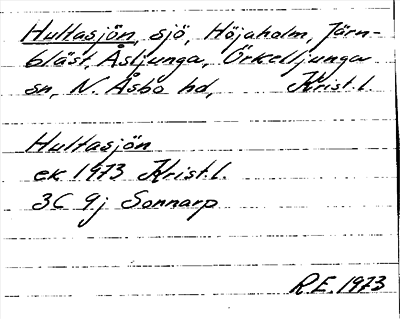 Hultasjön, sjö, Höjaholm, Järn-
bläst, Åsljunga, Örkelljunga
sn, N. Åsbo hd, Krist. l.
Hultasjön
ek 1973 Krist. l.
3C 9j Sonnarp
R.E. 1973